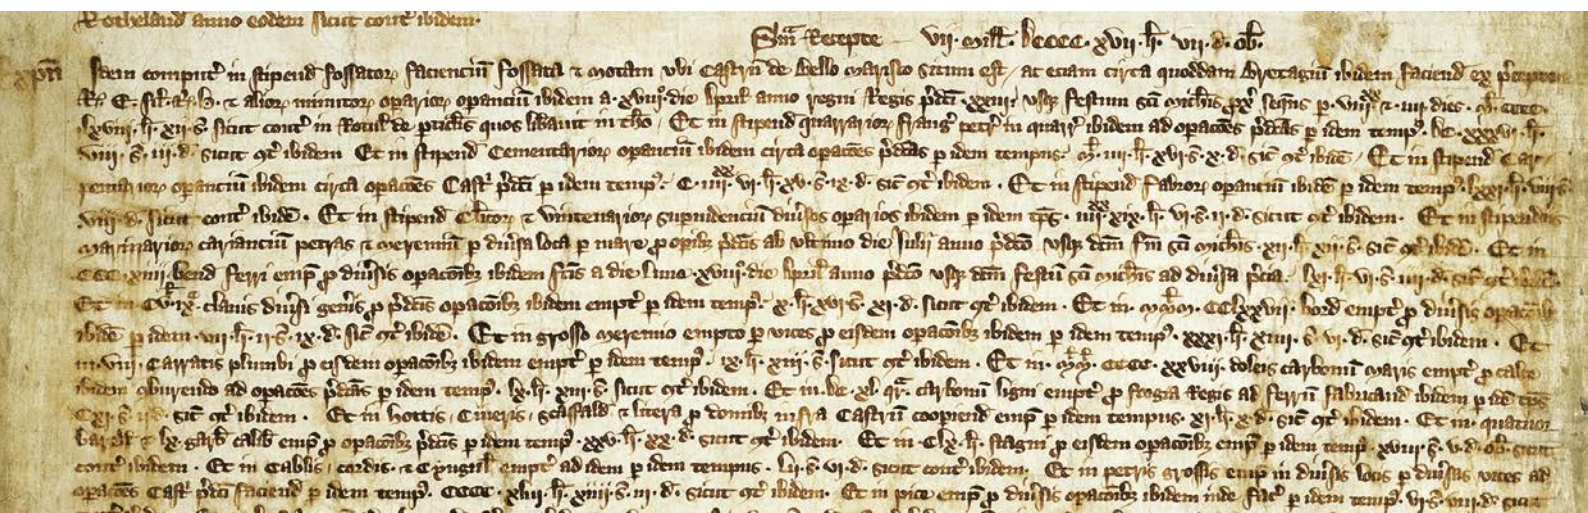 Rotheland anno eodem sicut contʼ ibidem.
Sm̃ Recepte vij. mill. Dcccc. xvij. li. vij. d. ob.
Item computʼ in stipend fossatorꝝ faciencium fossata ⁊ motam ubi Castrũ de Bello Marisco situm est, ac eciam circa quoddam Bretagiũ ibidem faciend ex
R̃. E. fil. R̃. H. ⁊ aliorꝝ minutorꝝ opariorꝝ opancium ibidem a. xviijº. die Aprilʼ anno regni Regis p̃dci. xxiijº. usqꝫ festum sci Michis px̃ sequens p.
lxviij. li. xij. s̃. sicut contʼ in Rotulʼ de pticulis quos libauit in Et in stipend quarrariorꝝ frangʼ petrʼ in quarrʼ ibidem ad opacões p̃dcas p idem tempꝰ. Dc. xxxvj. li.
viij. s̃. iij. d. sicut ꝯtʼ ibidem Et in stipend Cementariorꝝ opanciũ ibidem circa opacões p̃dcas p idem tempus. Mł. iiij. li. xvj. s̃. x. d. sic̃ ꝯtʼ ibidẽ, Et in stipend Car-
pentariorꝝ opanciũ ibidem circa opacões Castʼ p̃dci p idem tempꝰ. C. iiijˣˣ. vj. li. xv. s̃. ix. d. sic̃ ꝯtʼ ibidem. Et in stipend Fabrorꝝ opanciũ ibidẽ p idem tempꝰ. lxxj. li. viij. s̃.
viij. d. sicut contʼ ibidẽ. Et in stipend Clicorꝝ ⁊ vintenariorꝝ supuidenciũ diũsos oparios ibidem p idem tp̃s. iiijˣˣ. xix. li. vj. s̃. ij. d. sicut ꝯtʼ ibidem. Et in stipendijs
marinariorꝝ cariancium petras ⁊ meremiũ p diũsa loca p mare ꝓ opibꝫ p̃dcis ab ultimo die Julii anno p̃dco usqꝫ dcm fm sci Michis. xij. li. xij. s̃. sic̃ ꝯtʼ ibidẽ. Et in
ccc. xiiij. bend ferri emp̃ ꝓ diũsis opacõibꝫ ibidem fcis a die Lune. xviijº. die Aprilʼ anno p̃dco usqꝫ dcm festũ sci Michis ad diũsa p̃cia. lxj. li. vj. s̃. iiij. d. sic̃ ꝯtʼ
Et in clauis diũsi geñis ꝓ p̃dcis opacõibꝫ ibidem emptʼ p idem tempꝰ. x. li. xvj. s̃. xj. d. sicut ꝯtʼ ibidem. Et in. cclxxvij. bord emptʼ ꝓ diũsis
ibidẽ p idem. vij. li. ij. s̃. ix. d. sic̃ ꝯtʼ ibidẽ. Et in grosso meremio empto p uices ꝓ eisdem opacõibꝫ ibidem p idem tempꝰ. xxxj. li. xiiij. s̃. vj. d. sic̃ ꝯtʼ ibidem. Et
in. viij. Carratis plumbi ꝓ eisdem opacõibꝫ ibidem emptʼ p idem tempꝰ. ix. li. xiij. s̃. sicut ꝯtʼ ibidem. Et in. cccc. xxviij. doleis carbonũ maris emptʼ ꝓ calce
ibidem ꝯburendo ad opacões p̃dcas p idem tempꝰ. lx. li. xiij. s̃. sicut ꝯtʼ ibidem. Et in. Dc. xl. qr̃. carbonũ ligni emptʼ ꝓ forgia Regis ad ferrũ fabricand ibidem p idẽ tp̃s
Cxj. s̃. ij. d. sic̃ ꝯtʼ ibidem. Et in hottis, Cineris, scaffald ⁊ litera ꝓ domibꝫ infra Castrũ cooꝑiend emp̃ p idem tempus. xj. li. x. d. sic̃ ꝯtʼ ibidem. Et in. quatuor
barellʼ ⁊ lx. garb calib emp̃ ꝓ opacõibꝫ p̃dcis p idem tempꝰ. xxv. li. xx. d. sicut ꝯtʼ ibidem. Et in Clx. li. stagni ꝓ eisdem opacõibꝫ emp̃ p idem tempꝰ. xviij. s̃. v. d. ob̃. sicut
contʼ ibidem. Et in Cablis, cordis, ⁊ emptʼ ad idem p idem tempus. Lij. s̃. vj. d. sicut contʼ ibidem. Et in petris grossis emp̃ in diũsis locis p diũsas uices ad
opacões Castʼ p̃dci faciend p idem tempꝰ. cccc. xliij. li. xiiij. s̃. iij. d. sicut ꝯtʼ ibidem. Et in pice emp̃ ꝓ diũsis opacõibꝫ ibidem inde fac̃ p idem tempꝰ. vj. s̃. viij. d. sicut